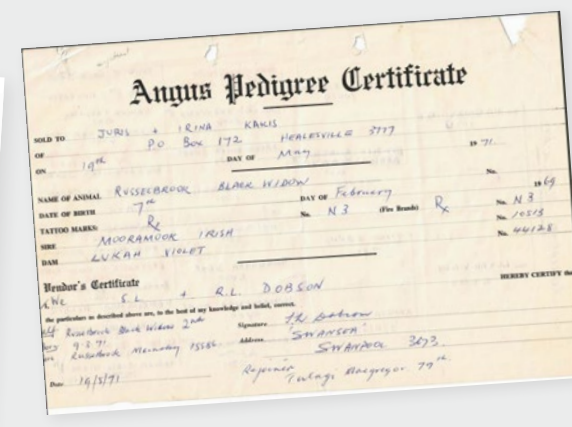 Angus Pedigree Certificate
SOLD TO JURIS + IRINA KAKIS
OF P.O Box 172 HEALESVILLE 3777
ON 19th DAY OF May 1971.
No.
NAME OF ANIMAL RUSSELBROOK BLACK WIDOW
DATE OF BIRTH 7th DAY OF February 1969
TATTOO MARKS: Rx No. N3 (Fire Brands) Rx No. N3
SIRE MOORAMOOR IRISH No. 10513
DAM LUKAH VIOLET No. 44128
Vendor's Certificate
We S.L + R.L. DOBSON HEREBY CERTIFY that
the particulars as described above are, to the best of my knowledge and belief, correct.
Calf Russelbrook Black Widow 2nd Signature Dobson
9.3.71. Address 'SWANSEA'
Russelbrook 15586 SWANPOOL 3673
Rejoined
Date 19/5/71 Macgregor 77th